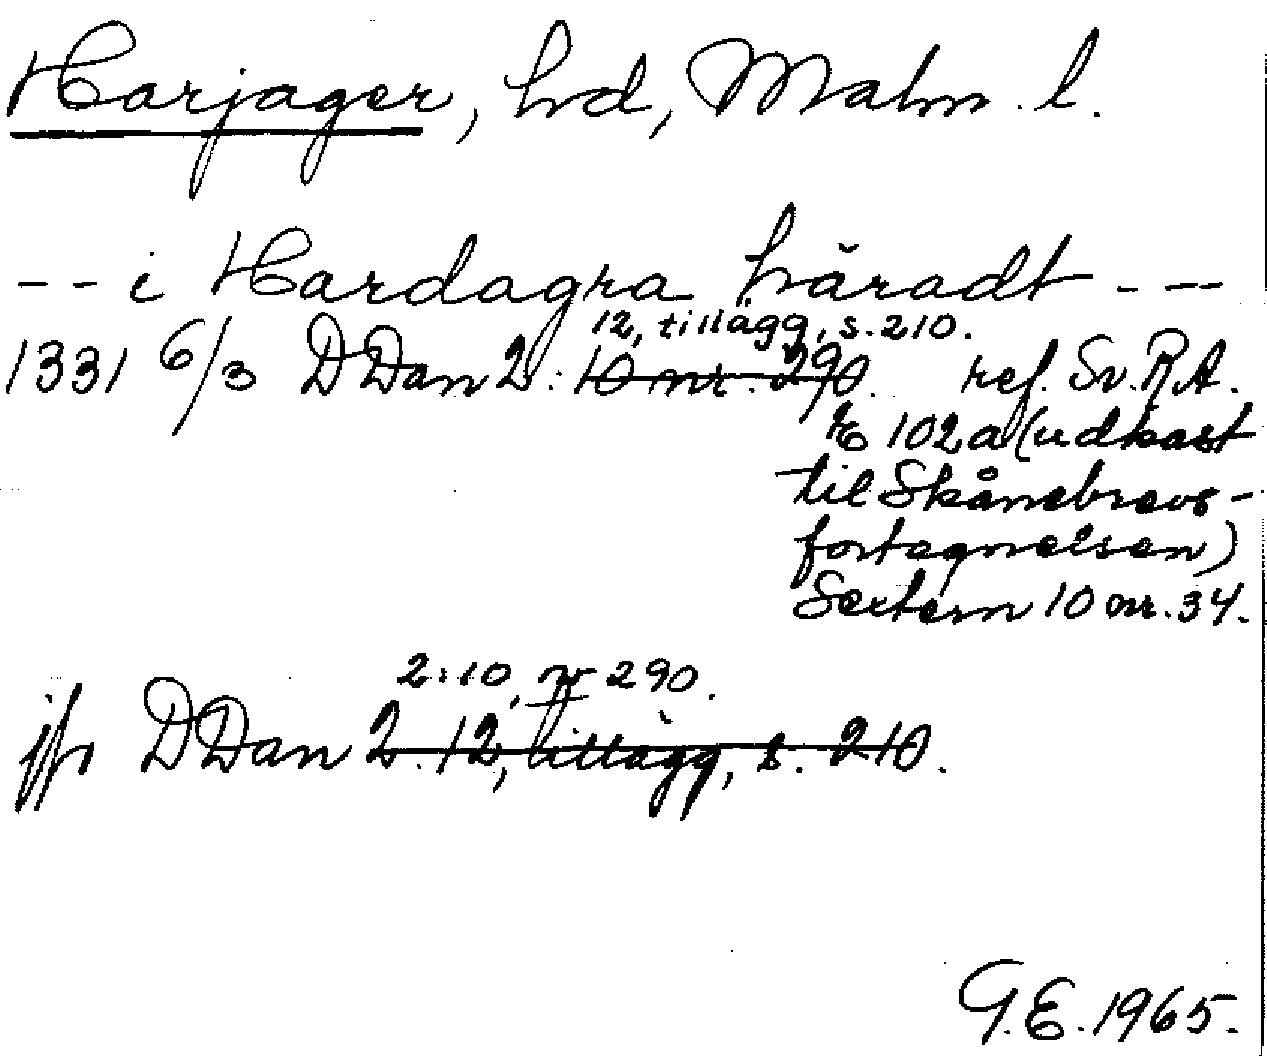 Harjager, hd, Malm. l.
-- i Hardagra håradt ---
12, tillägg, s. 210.
1331 6/3 DDan 2: 10 nr. 290. ref. Sv. R.A.
E 102 a (udkast
til Skånebrevs-
fortegnelsen)
Sextern 10 nr. 34.
2:10, nr 290.
jfr DDan 2:12, tillägg, s. 210.
G.E. 1965.